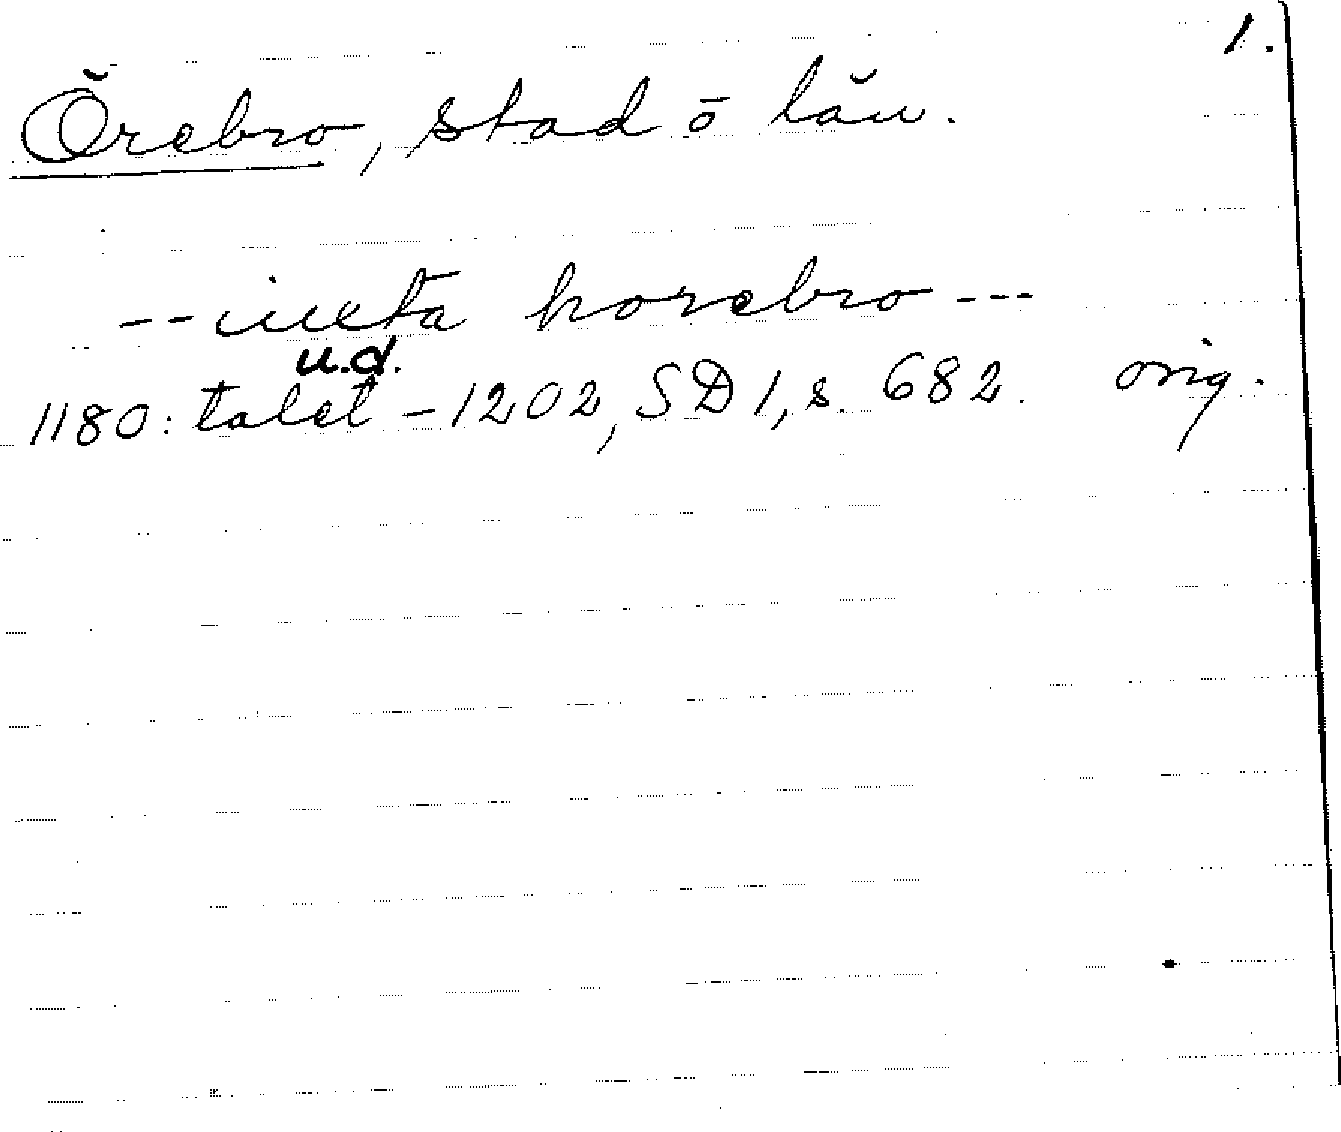 1.
Örebro, stad o län.
-- iuxta horebro ---
u.d.
1180: talet - 1202, SD 1, s. 682. orig.